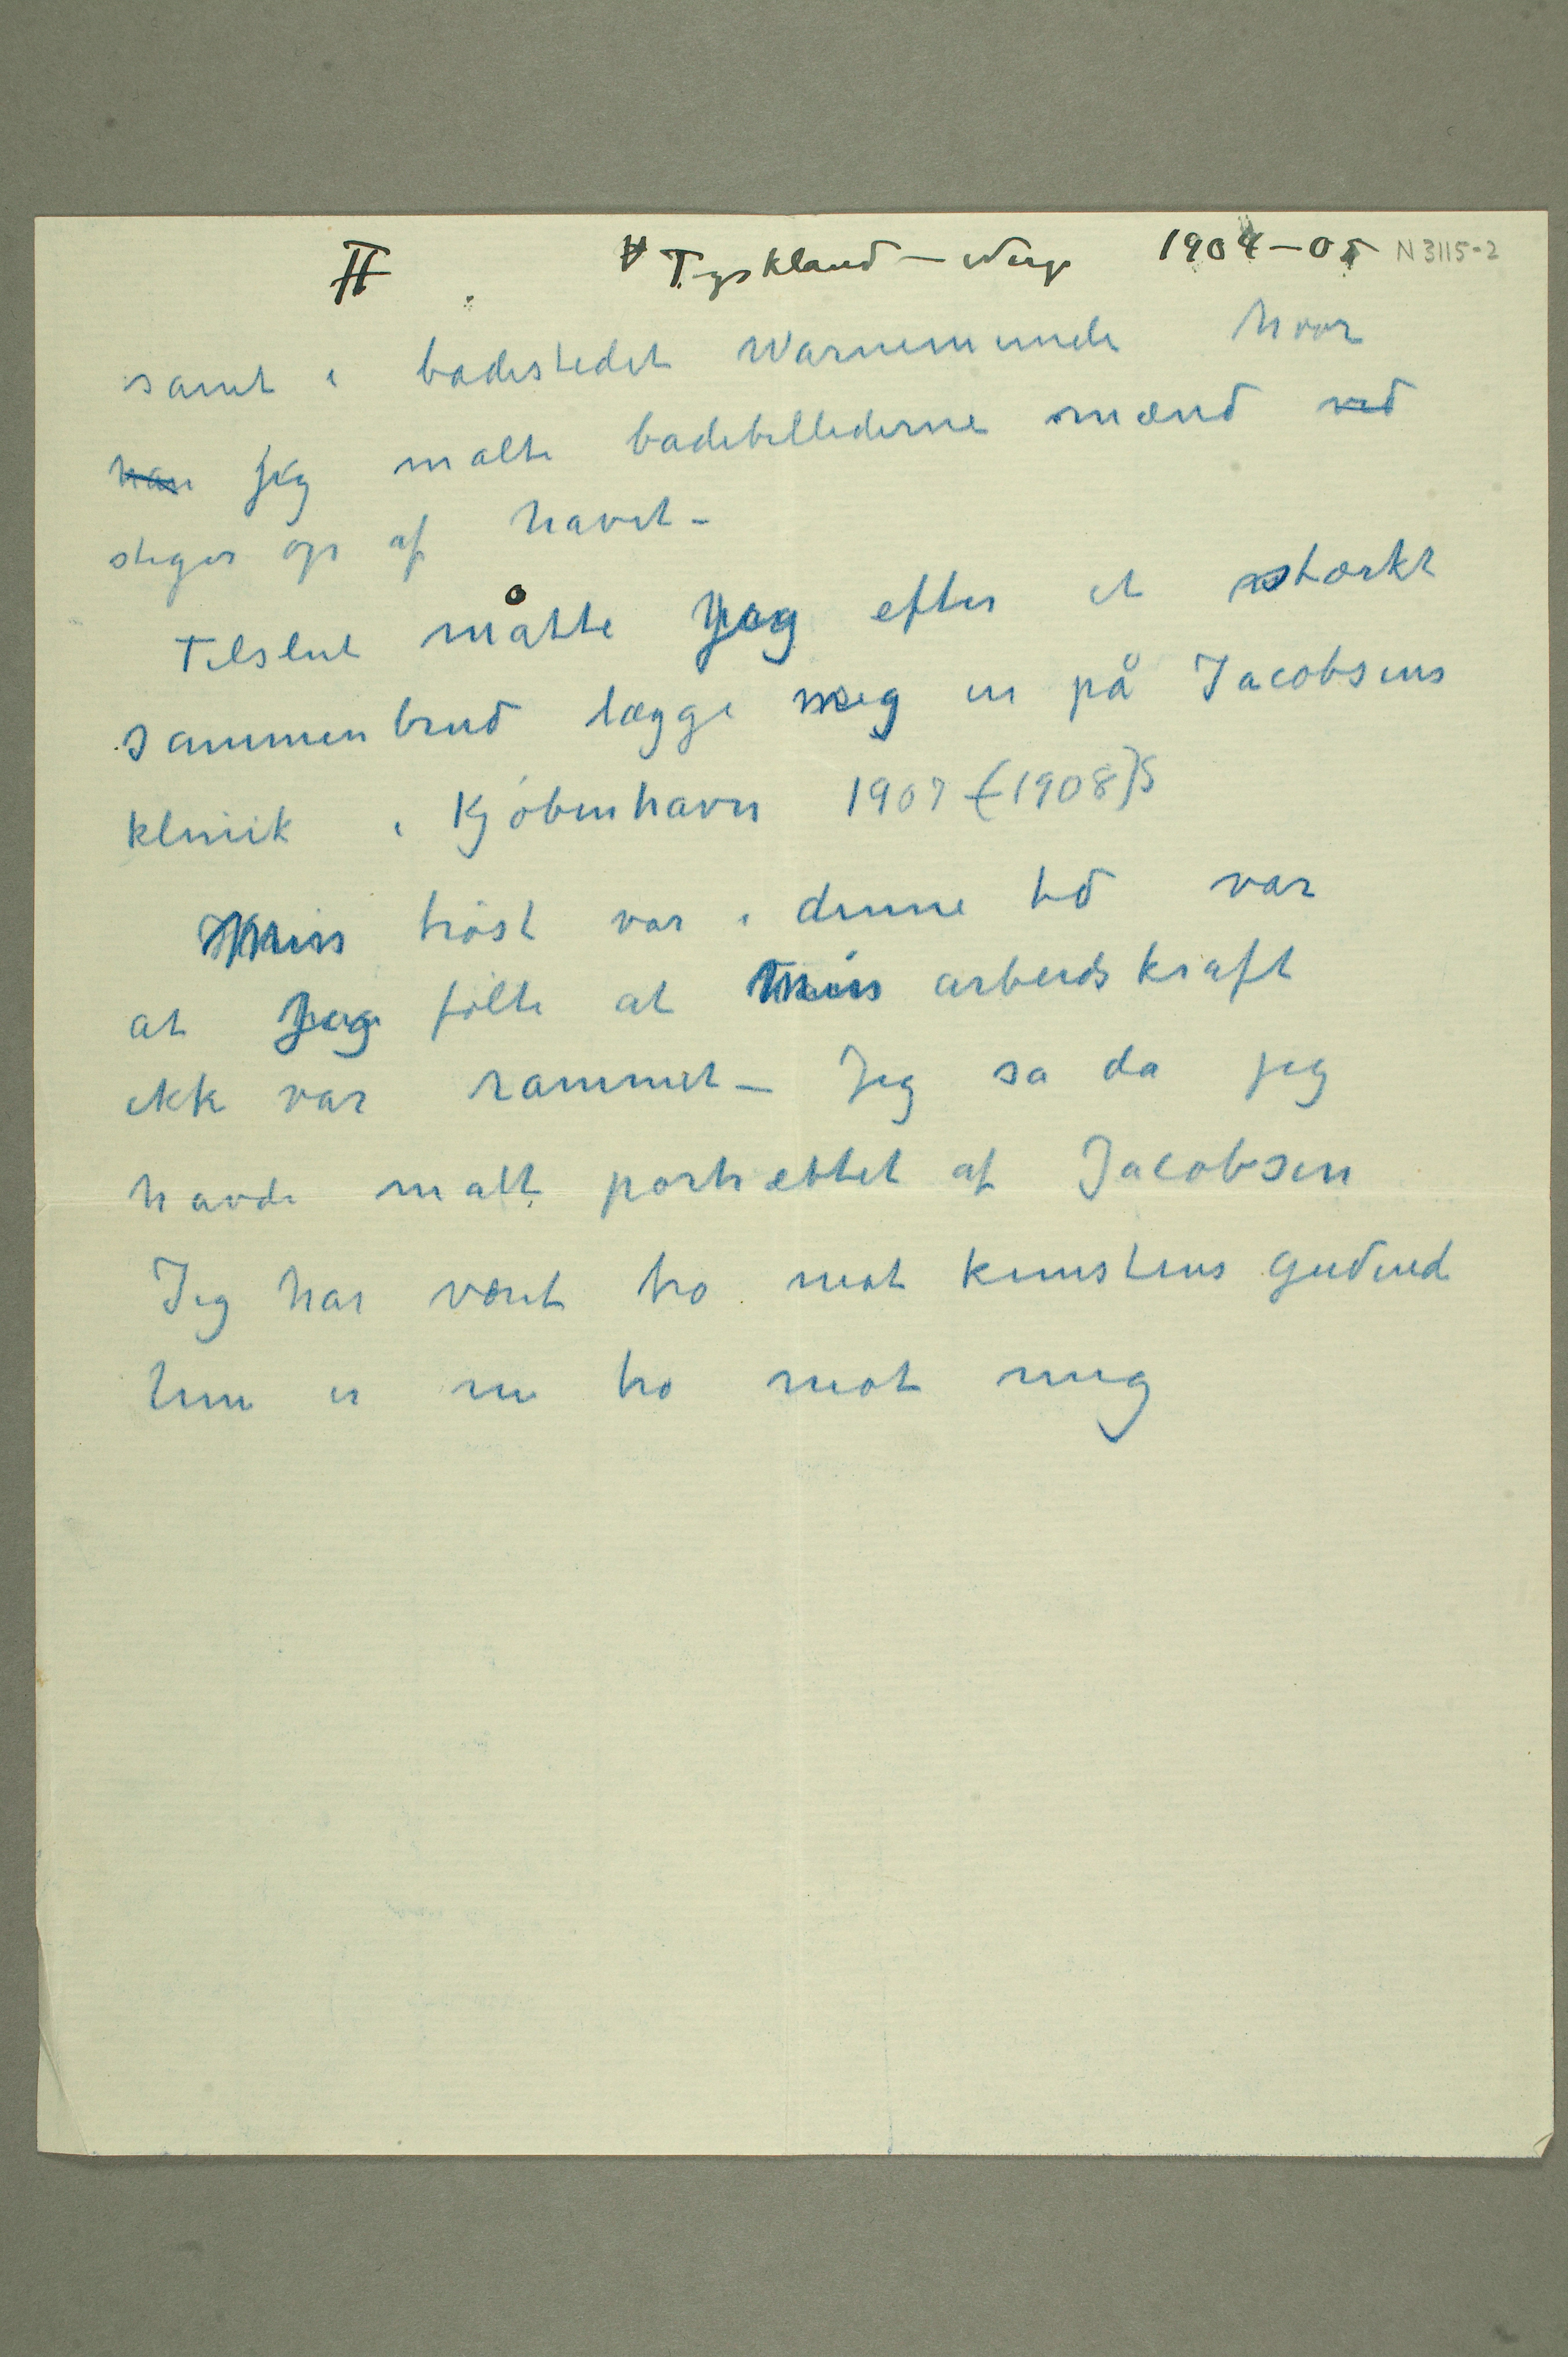 II Tyskland – Norge 1904–05 N 3115-2
samt i badestedet Warnemunde hvor
han jeg malte badebillederne mænd ved
stiger op af havet –
Tilslut måtte jeg efter et stærkt
sammenbrud lægge meg in på Jacobsens
klinik i Kjøbenhavn 1907 (1908)S
Min trøst var i denne tid var
at jeg følte at min arbeidskraft
ikke var rammet – Jeg sa da jeg
havde malt portrættet af Jacobsen
Jeg har været tro mot kunstens gudinde
hun er nu tro mot mig